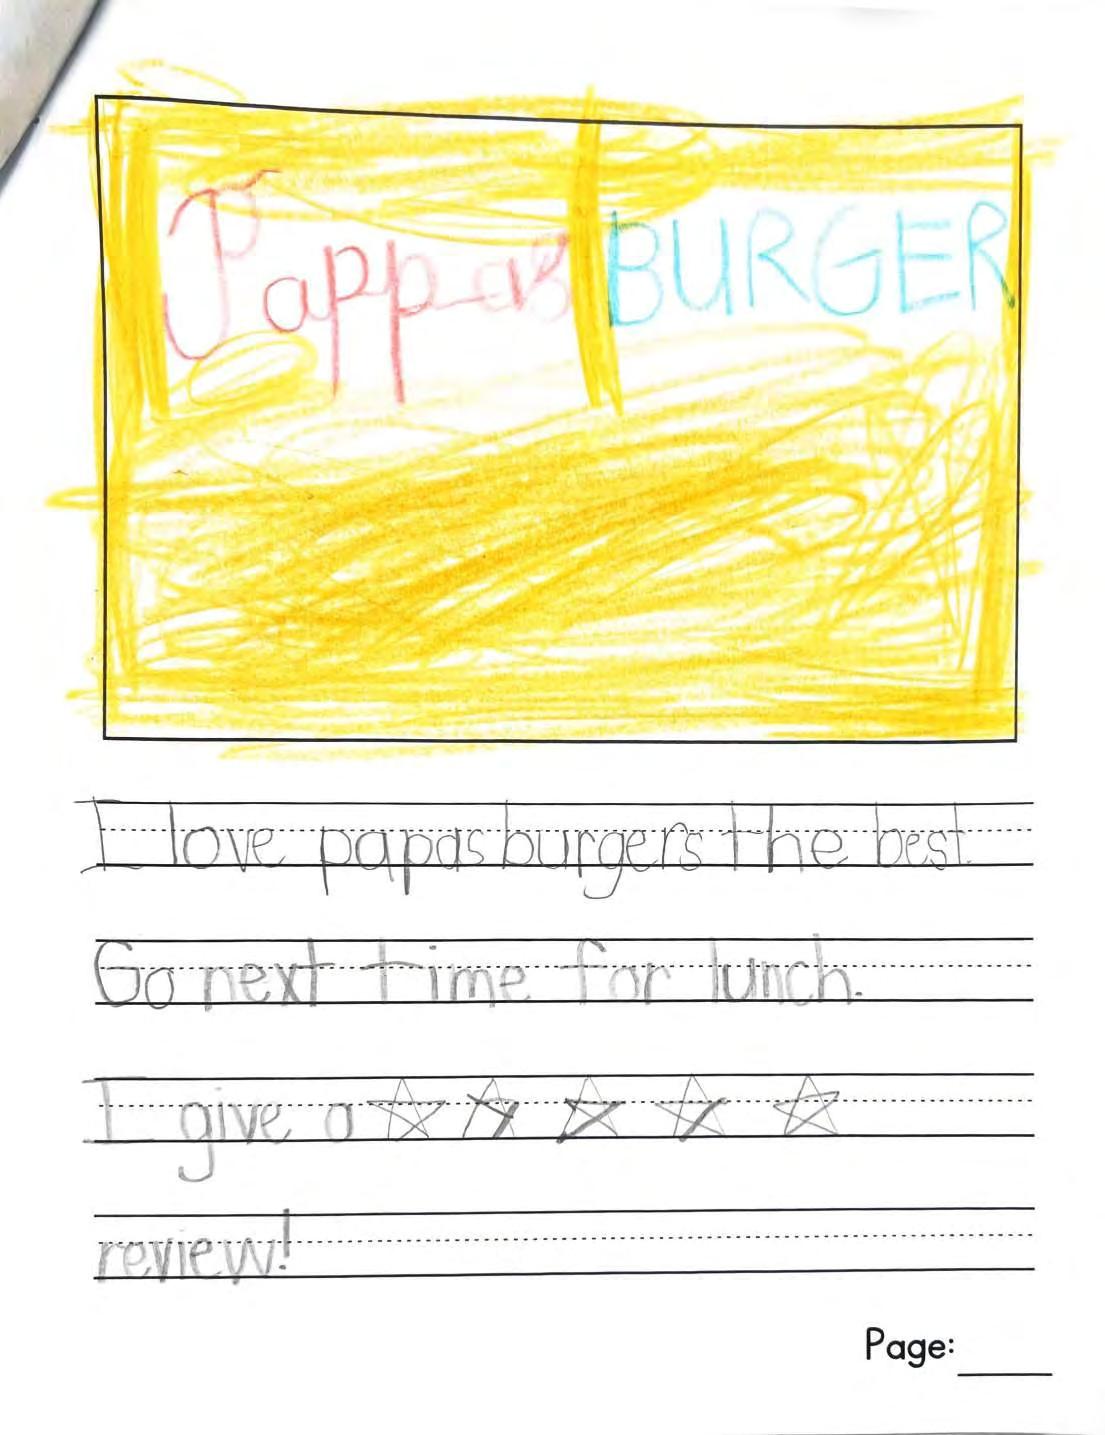 Pappas BURGER
I love papas burgers the best
Go next time for lunch.
I give a ☆☆☆☆☆
review!
Page: